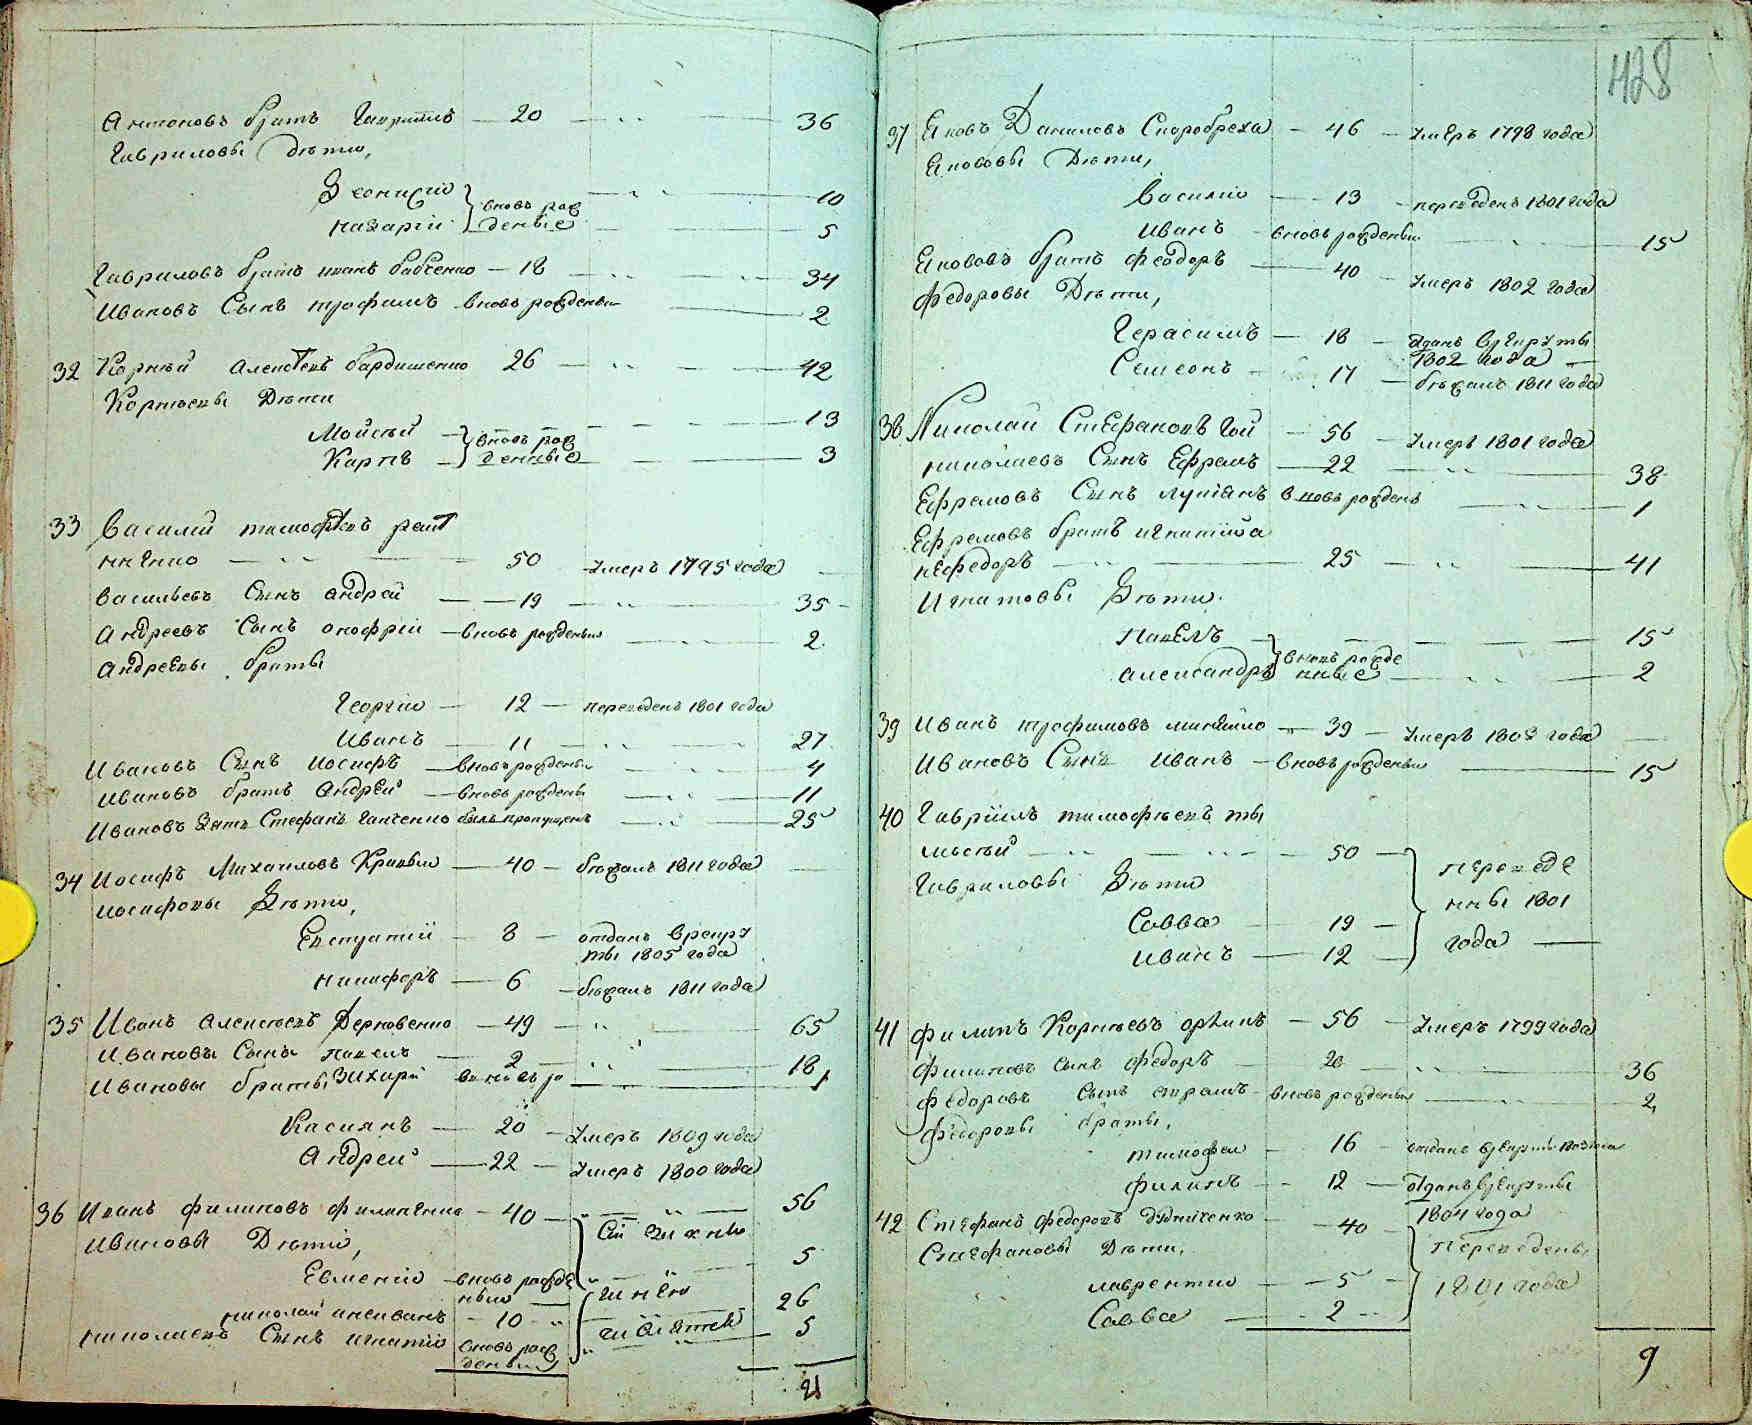 Антоновъ братъ Гавриилъ — 20 — 36
Гавриловы дѣти,
Деонисiй 10
Назарiй вновь рожденые 5
Гавриловъ братъ Иванъ Бабченко — 18 — 34
Ивановъ Сынъ трофимъ вновь рожденый 2
32 Корнѣй Алексѣевъ 26 — 42
Корнѣевы Дѣти
Мойсѣй — 13
Карпъ — вновь рожденные 3
33 Василий тимофѣевъ
50 умеръ 1795 года
Васильевъ Сынъ андрей — 19 — 35
Андреевъ Сынъ онофрiй — вновь рожденый 2
Андреевы братья
Георгiй — 12 — переведенъ 1801 года
Иванъ — 11 — 27
Ивановъ Сынъ иосифъ — вновь рожденый 4
Ивановъ братъ Андрей — вновь рожденый 11
Ивановъ зять Стефанъ Ганченко былъ пропущенъ 25
34 Иосифъ Михайловъ Кривый — 40 — бѣжалъ 1811 года
иосифовы Дѣти,
Евстратiй — 8 — отданъ врекруты 1805 года
никифоръ — 6 — бѣжалъ 1811 года
35 Иванъ Алексѣевъ Дерковенко — 49 — 65
Ивановъ Сынъ павелъ — 2 — 18
Ивановы братья Захарiй 1
Касиянъ — 20 — умеръ 1809 года
Андрей — 22 — умеръ 1800 года
36 Иванъ филиповъ филипченко — 40 — 56
Ивановы Дѣти,
Евменiй — вновь рожденый 5
николай — 10 — 26
николаевъ Сынъ игнатiй вновь рожденый 5
21
428
37 Яковъ Даниловъ Скоробреха — 46 — умеръ 1798 года
Якововы Дѣти,
Василiй — 13 — переведенъ 1801 года
Иванъ — вновь рожденый 15
Якововъ братъ феодоръ — 40 — умеръ 1802 года
федоровы Дѣти,
Герасимъ — 18 — отданъ врекруты
1802 года
Семеонъ — 17 — бѣжалъ 1811 года
38 Николай Стефановъ Гой — 56 — умеръ 1801 года
николаевъ Сынъ Ефремъ — 22 — 38
Ефремовъ Сынъ лукiянъ вновь рожденъ 1
Ефремовъ братъ игнатiй
25 — 41
Игнатовы Дѣти.
павелъ — 15
александръ вновь рожденные 2
39 Иванъ трофимовъ — 39 — умеръ 1803 года
Ивановъ Сынъ Иванъ — вновь рожденый 15
40 Гаврiилъ тимофѣевъ
50
Гавриловы Дѣти
переведенны 1801 года
Савва — 19
иванъ — 12
41 филипъ Корнѣевъ — 56 — умеръ 1799 года
филиповъ сынъ федоръ — 20 — 36
федоровъ сынъ — вновь рожденый 2
федоровы братья,
тимофей — 16
филипъ — 12 — отданъ врекруты
1804 года
42 Стефанъ федоровъ — 40
Стефановы Дѣти,
переведены
1801 года
лаврентiй — 5
Савва — 2
9